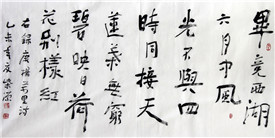 畢竟西湖
六月中風
光不與四
時同接天
蓮葉無窮
碧映日荷
花別樣紅
右錄楊萬里詩
乙未年夏